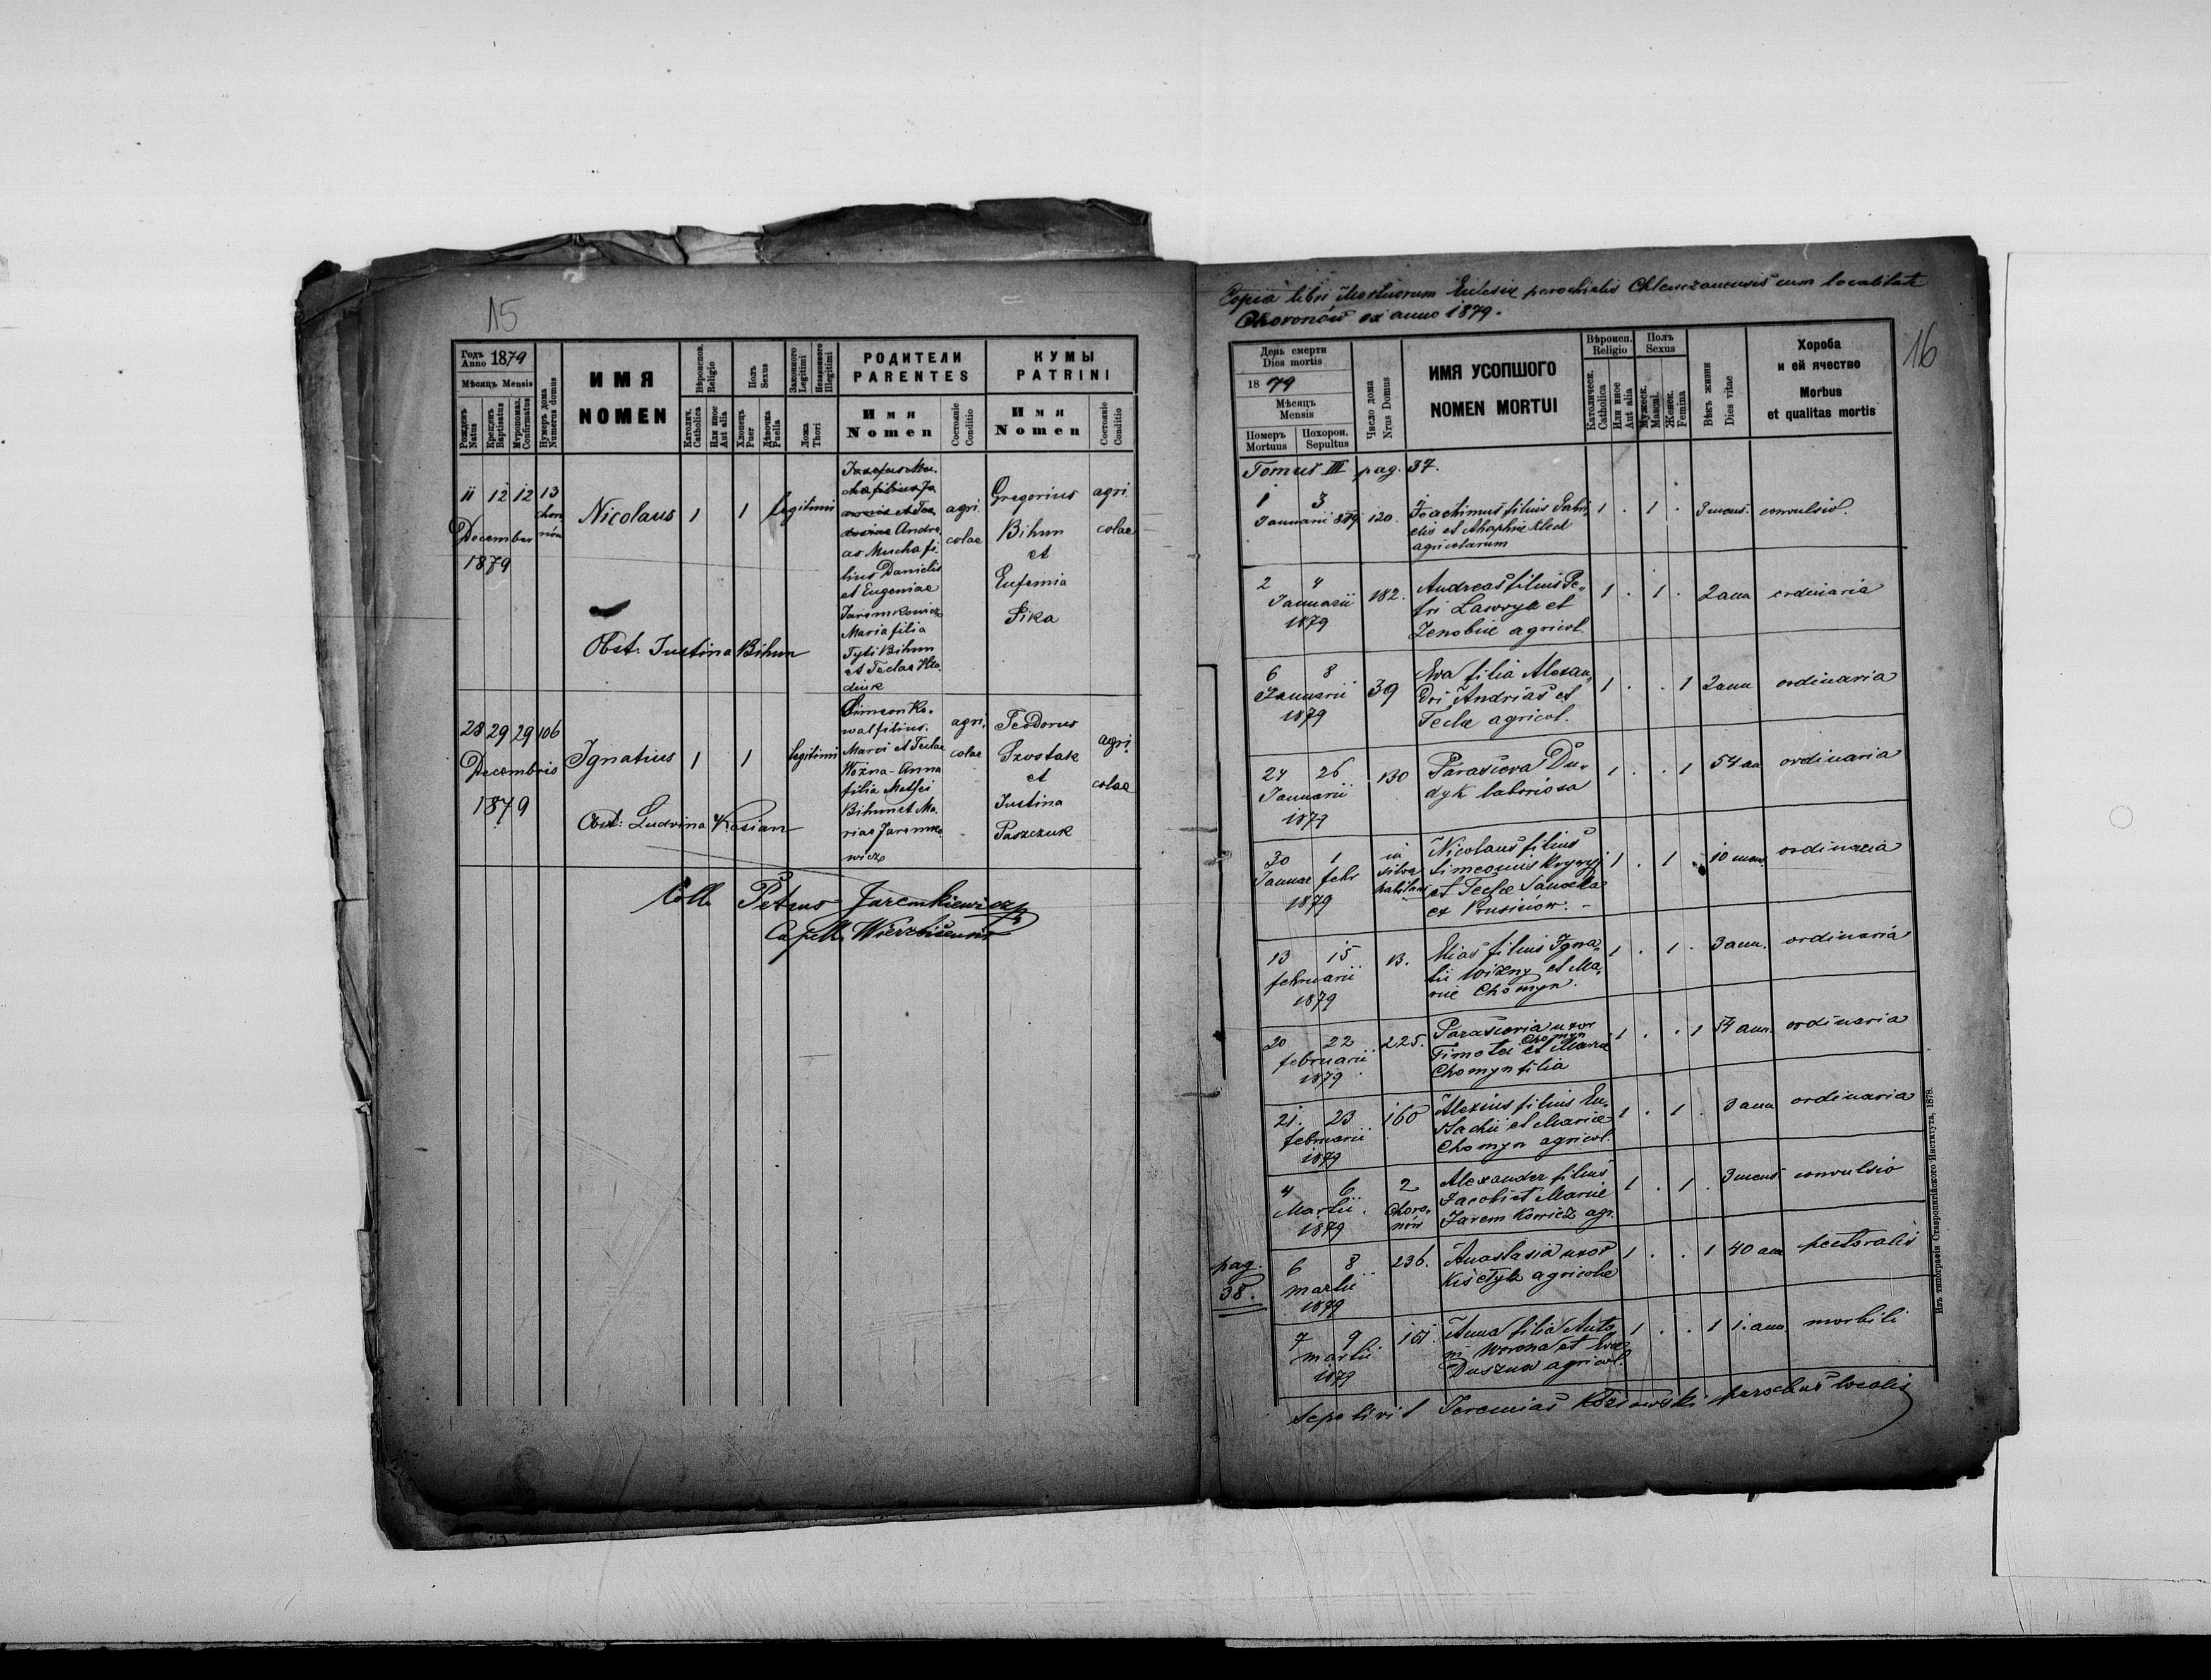 15
Годъ Anno 1879
Мѣсяцъ Mensis
Рожденъ Natus
Крещенъ Baptisatus
Мѵропомаз. Confirmatus
Нумеръ дома Numerus domus
ИМЯ
NOMEN
Вѣроиспов. Religio
Католич. Catholica
Или иное Aut alia
Полъ Sexus
Хлопець Puer
Дѣвочка Puella
Законного Legitimi
Незаконного Illegitimi
Ложа Thori
РОДИТЕЛИ
PARENTES
Имя
Nomen
Состояніе Conditio
КУМЫ
PATRINI
Имя
Nomen
Состояніе Conditio
11 12 12 13
Choro
nów
December
1879
Nicolaus 1 1 legitimi
Andre
as Mucha fi
lius Danielis
et Eugeniae
Jaremkowicz
Maria filia
Tyti Bihun
et Teclae Hla
diuk
agri
colae
Gregorius
Bihun
et
Eufemia
Sika
agri
colae
Obst. Justina Bihun
28 29 29 106
Decembris
1879
Ignatius 1 1 legitimi
Simeon Ko
wal filius
Marci et Teclae
Woźna - Anna
filia Mathei
Bihun et Ma
riae Jaremko
wicz
agri
colae
Teodorus
Szostak
et
Justina
Paszczuk
agri
colae
Obst: Ludvina Kasian
Petrus Jaremkiewicz
Capell.
Copia libri Mortuorum Eclesiae parochialis Chlewczanensis cum localitate
Choronów ex anno 1879.
16
День смерти
Dies mortis
1879
Мѣсяцъ
Mensis
Померъ Mortuus
Похорон. Sepultus
Число дома
Nrus Domus
ИМЯ УСОПШОГО
NOMEN MORTUI
Вѣроисп.
Religio
Католическ. Catholica
Или иное Aut alia
Полъ
Sexus
Мужеск. Mascul.
Женск. Femina
Вѣкъ жизни
Dies vitae
Хороба
и ей ячество
Morbus
et qualitas mortis
Tomus III pag. 37.
1 3
Januarii 879 120.
Joachimus filius Gabri
elis et Agaphiae
agricolarum
1 . 1 . 3 mens. convulsio.
2 4
Januarii
1879
182.
Andreas filius Pe
tri Lawryk et
Zenobiae agricol.
1 . 1 . 2 ann ordinaria
6 8
Januarii
1879
39
Eva filia Alexan
dri Andrias et
Teclae agricol.
1 . . 1 2 ann ordinaria
24 26
Januarii
1879
130
Parascewa Du
dyk laboriosa
1 . . 1 54 an ordinaria
30 1
Januar febr
1879
in
silva
Nicolaus filius
Simeonis
et Teclae
ex Prusinów. -
1 . 1 . 10 mens ordinaria
13 15
februarii
1879
13.
Elias filius Igna
tii Wizny et Ma
riae Chomyn.
1 . 1 . 3 ann. ordinaria
20 22
februarii
1879
225.
Parascevia uxor
Timotei Chomyn et Mariae
Chomyn filia
1 . . 1 54 ann. ordinaria
21. 23
februarii
1879
160
Alexius filius Eu
stachii et Mariae
Chomyn agricol.
1 . 1 . 3 ann ordinaria
4 6
Martii
1879
2
Choro
nów
Alexander filius
Jacobi et Mariae
Jaremkowicz agr.
1 . 1 . 3 mens convulsio
pag.
38.
6 8
martii
1879
236.
Anastasia uxor
agricolae
1 . . 1 40 ann pectoralis
7 9
martii
1879
101.
Anna filia Anto
ni Worona et Evae
Duszna agricol.
1 . . 1 1. ann. morbili
Sepelivit Jeremias parochus localis
Изъ типографіи Ставропигійского Института, 1878.